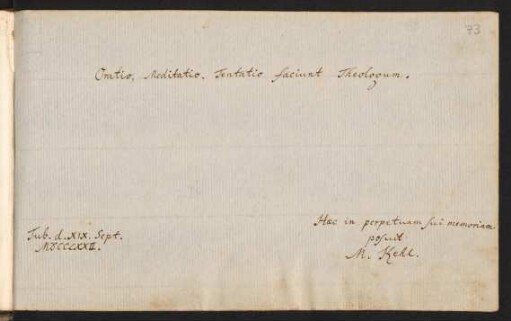 73
Oratio, Meditatio, Tentatio faciunt Theologum.
Hac in perpetuam sui memoriam
posuit
M. Kehl.
Tub. d. XIX. Sept.